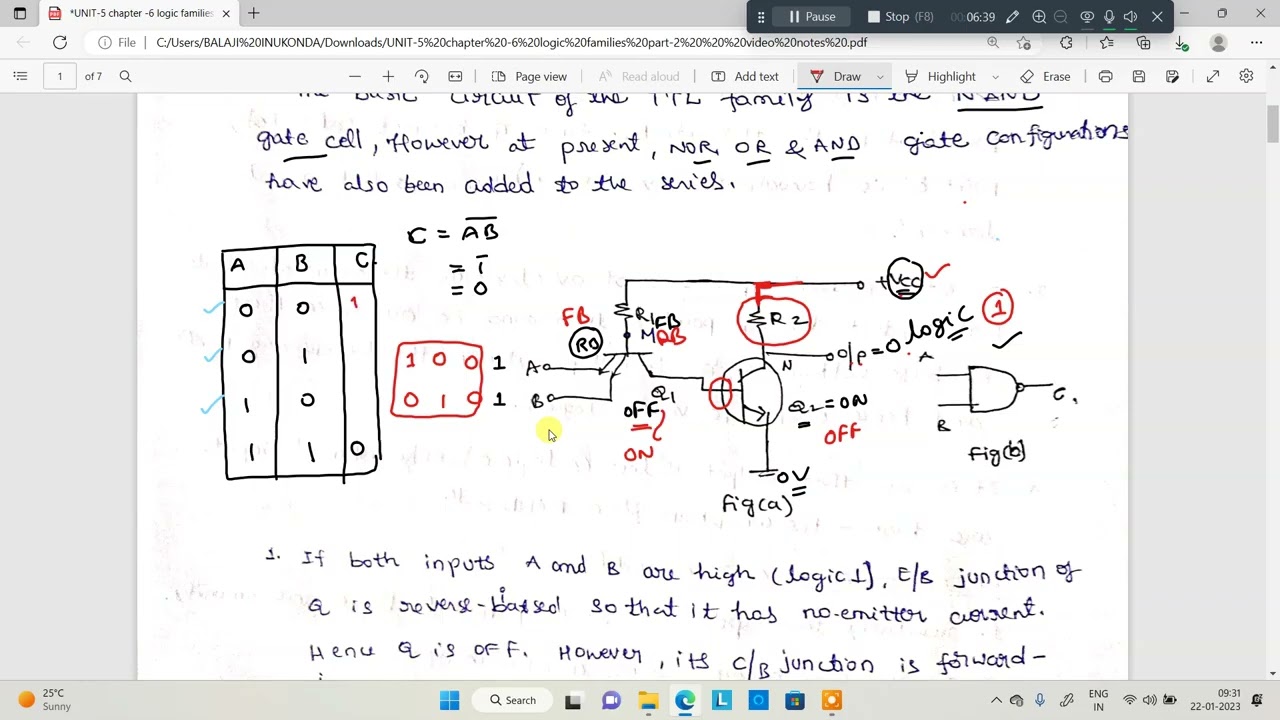 *UNIT-5 chapter -6 logic families
Pause
Stop (F8)
00:06:39
File
C:/Users/BALAJI%20INUKONDA/Downloads/UNIT-5%20chapter%20-6%20logic%20families%20part-2%20%20%20video%20notes%20.pdf
1
of 7
Page view
Read aloud
Add text
Draw
Highlight
Erase
The basic circuit of the TTL family is the NAND
gate cell, However at present, NOR OR & AND gate configurations
have also been added to the series.
C = AB
= 1
= 0
A B C
0 0 1
0 1
1 0
1 1 0
1 0 0 1 A
0 1 0 1 B
FB
R1 FB
M RB
Q1
OFF
ON
R2
+Vcc
N
o/p = 0 logic 1
Q2 = ON
OFF
0V
Fig(a)
A
B
C.
Fig(b)
1. If both inputs A and B are high (logic 1), E/B junction of
Q is reverse-biased so that it has no-emitter current.
Hence Q is OFF. However, its C/B junction is forward-
25°C
Sunny
Search
ENG
IN
09:31
22-01-2023